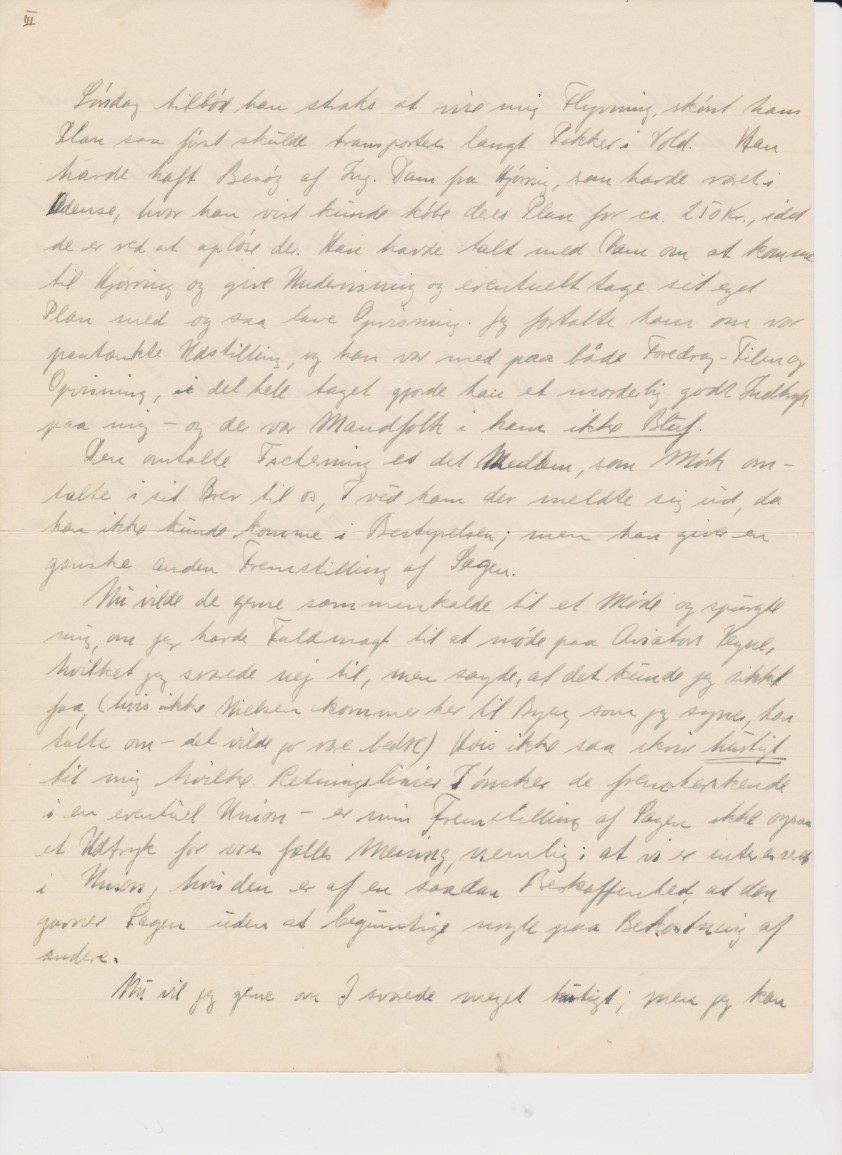 III
Søndag tilbød han straks at vise mig Flyvning, skønt hans
Plan saa først skulde transporteres langt Pikker i Vold. Han
havde haft Besøg af Ing. Dam fra Hjørring, som havde været i
Odense, hvor han vist kunde købe deres Plan for ca. 250 Kr., idet
de er ved at opløse der. Han havde talt med Dam om at komme
til Hjørring og give Undervisning og eventuelt tage sit eget
Plan med og saa lave Opvisning. Jeg fortalte ham om vor
paatænkte Udstilling, og han var med paa både Foredrag-Film og
Opvisning, i det hele taget gjorde han et morderlig godt Indtryk
paa mig – og der var Mandfolk i ham ikke Bluf.
Den omtalte Tscherning er det Medlem, som Mørk om-
talte i sit Brev til os, I véd ham der meldte sig ud, da
han ikke kunde komme i Bestyrelsen; men han giver en
ganske anden Fremstilling af Sagen.
Nu vilde de gerne sammenkalde til et Møde og spurgte
mig, om jeg havde Fuldmagt til at møde paa Aviators Vegne,
hvilket jeg svarede nej til, men sagde, at det kunde jeg sikkt
faa, (hvis ikke Nielsen kommer her til Byen, som jeg synes, han
talte om – det vilde jo være bedst) Hvis ikke saa skriv hurtigt
til mig hvilke Retningslinier I ønsker de fremherskende
i en eventuel Union – er min Fremstilling af Sagen ikke ogsaa
et Udtryk for vores fælles Mening, nemlig: at vi er interesseret
i Union, hvis den er af en saadan Beskaffenhed, at den
gavner Sagen uden at begunstige nogle paa Bekostning af
andre.
Nu vil jeg gerne om I svarede meget hurtigt; men jeg kan